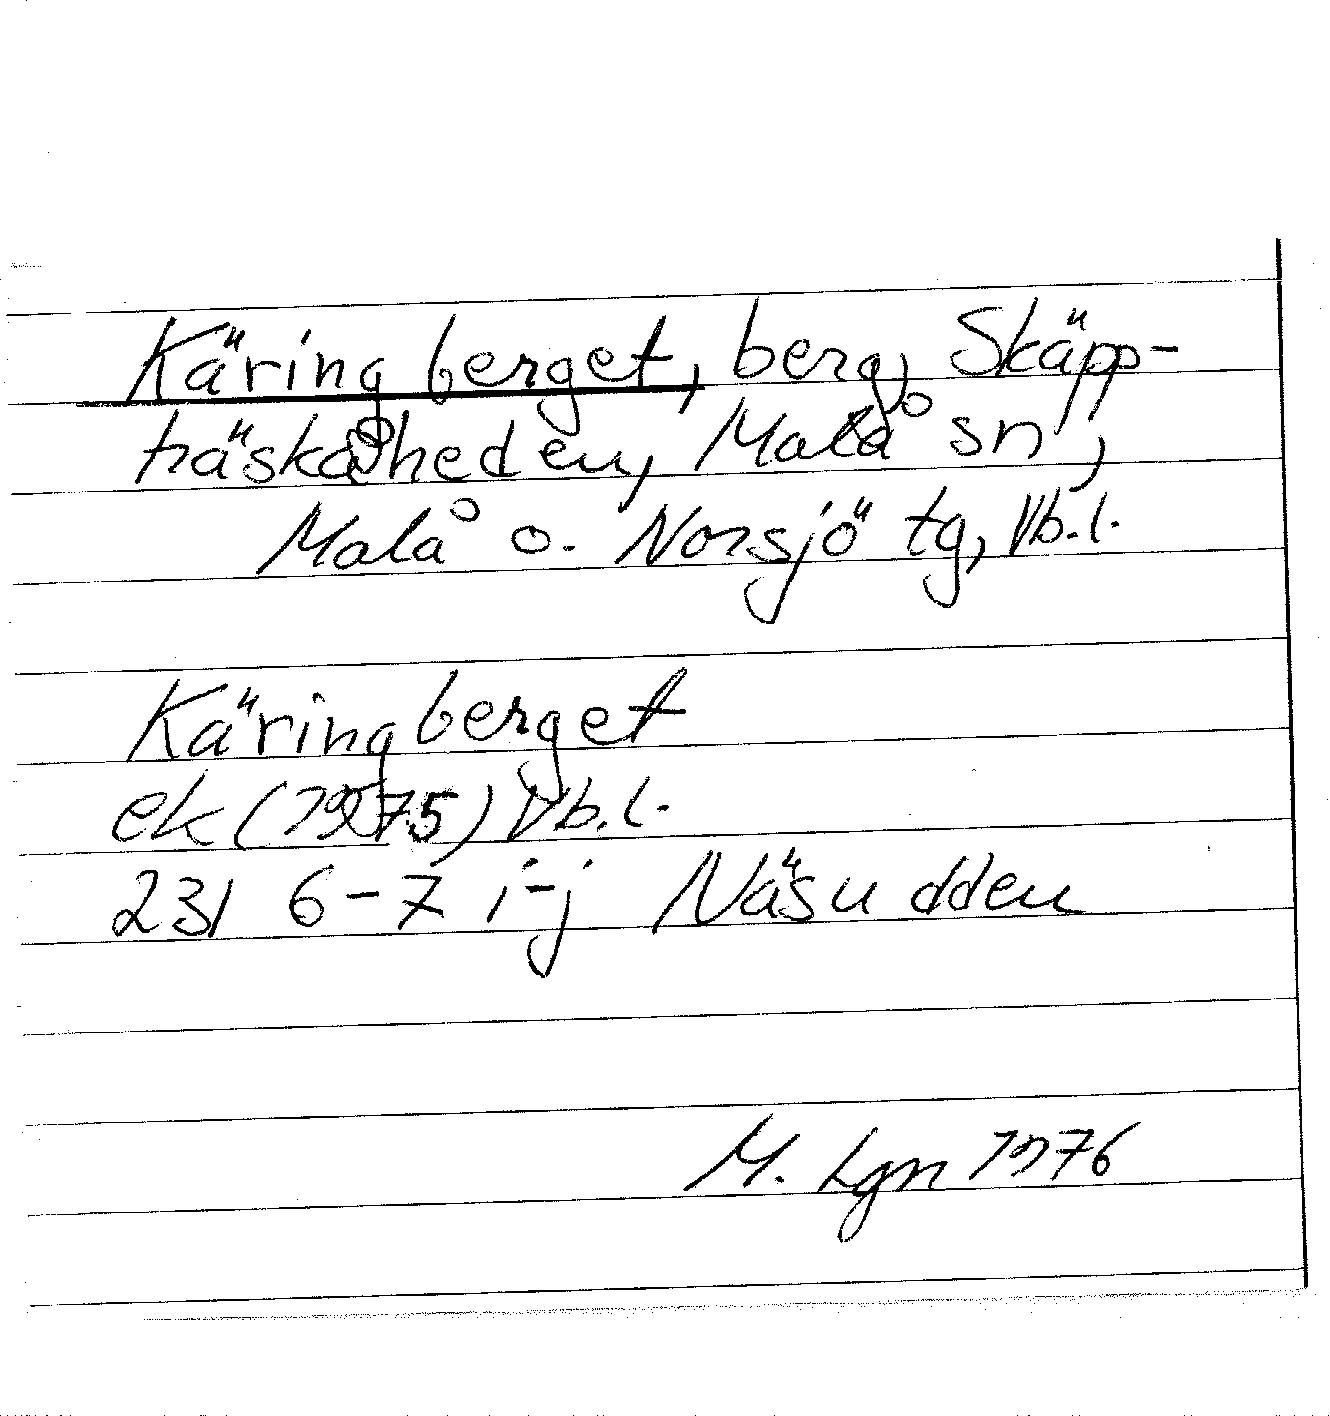 Käringberget, berg, Skäpp-
träskåheden, Malå sn,
Malå o. Norsjö tg, Vb.l.
Käringberget
ek (1975) Vb.l.
23I 6-7 i-j Näsudden
M. Lgn 1976